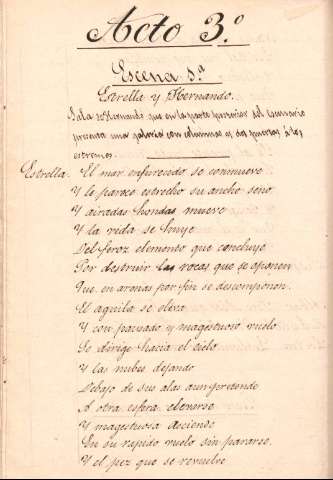 Acto 3.º
Escena 1.ª
Estrella y Hernando.
Sala de Hernando que en la parte posterior del escenario
presenta una galería con columnas y dos puertas á los
estremos.
Estrella. El mar enfurecido se conmueve
Y le parece estrecho su ancho seno
Y airadas hondas mueve
Y la vida se huye
Del feroz elemento que concluye
Por destruir las rocas que se oponen
Que en arenas por fin se descomponen.
El aguila se eleva
Y con pausado y magestuoso vuelo
Se dirige hacia el cielo
Y las nubes dejando
Debajo de sus alas aun pretende
A otra esfera elevarse
Y magestuosa deciende
En su rapido vuelo sin pararse.
Y el pez que se revuelve